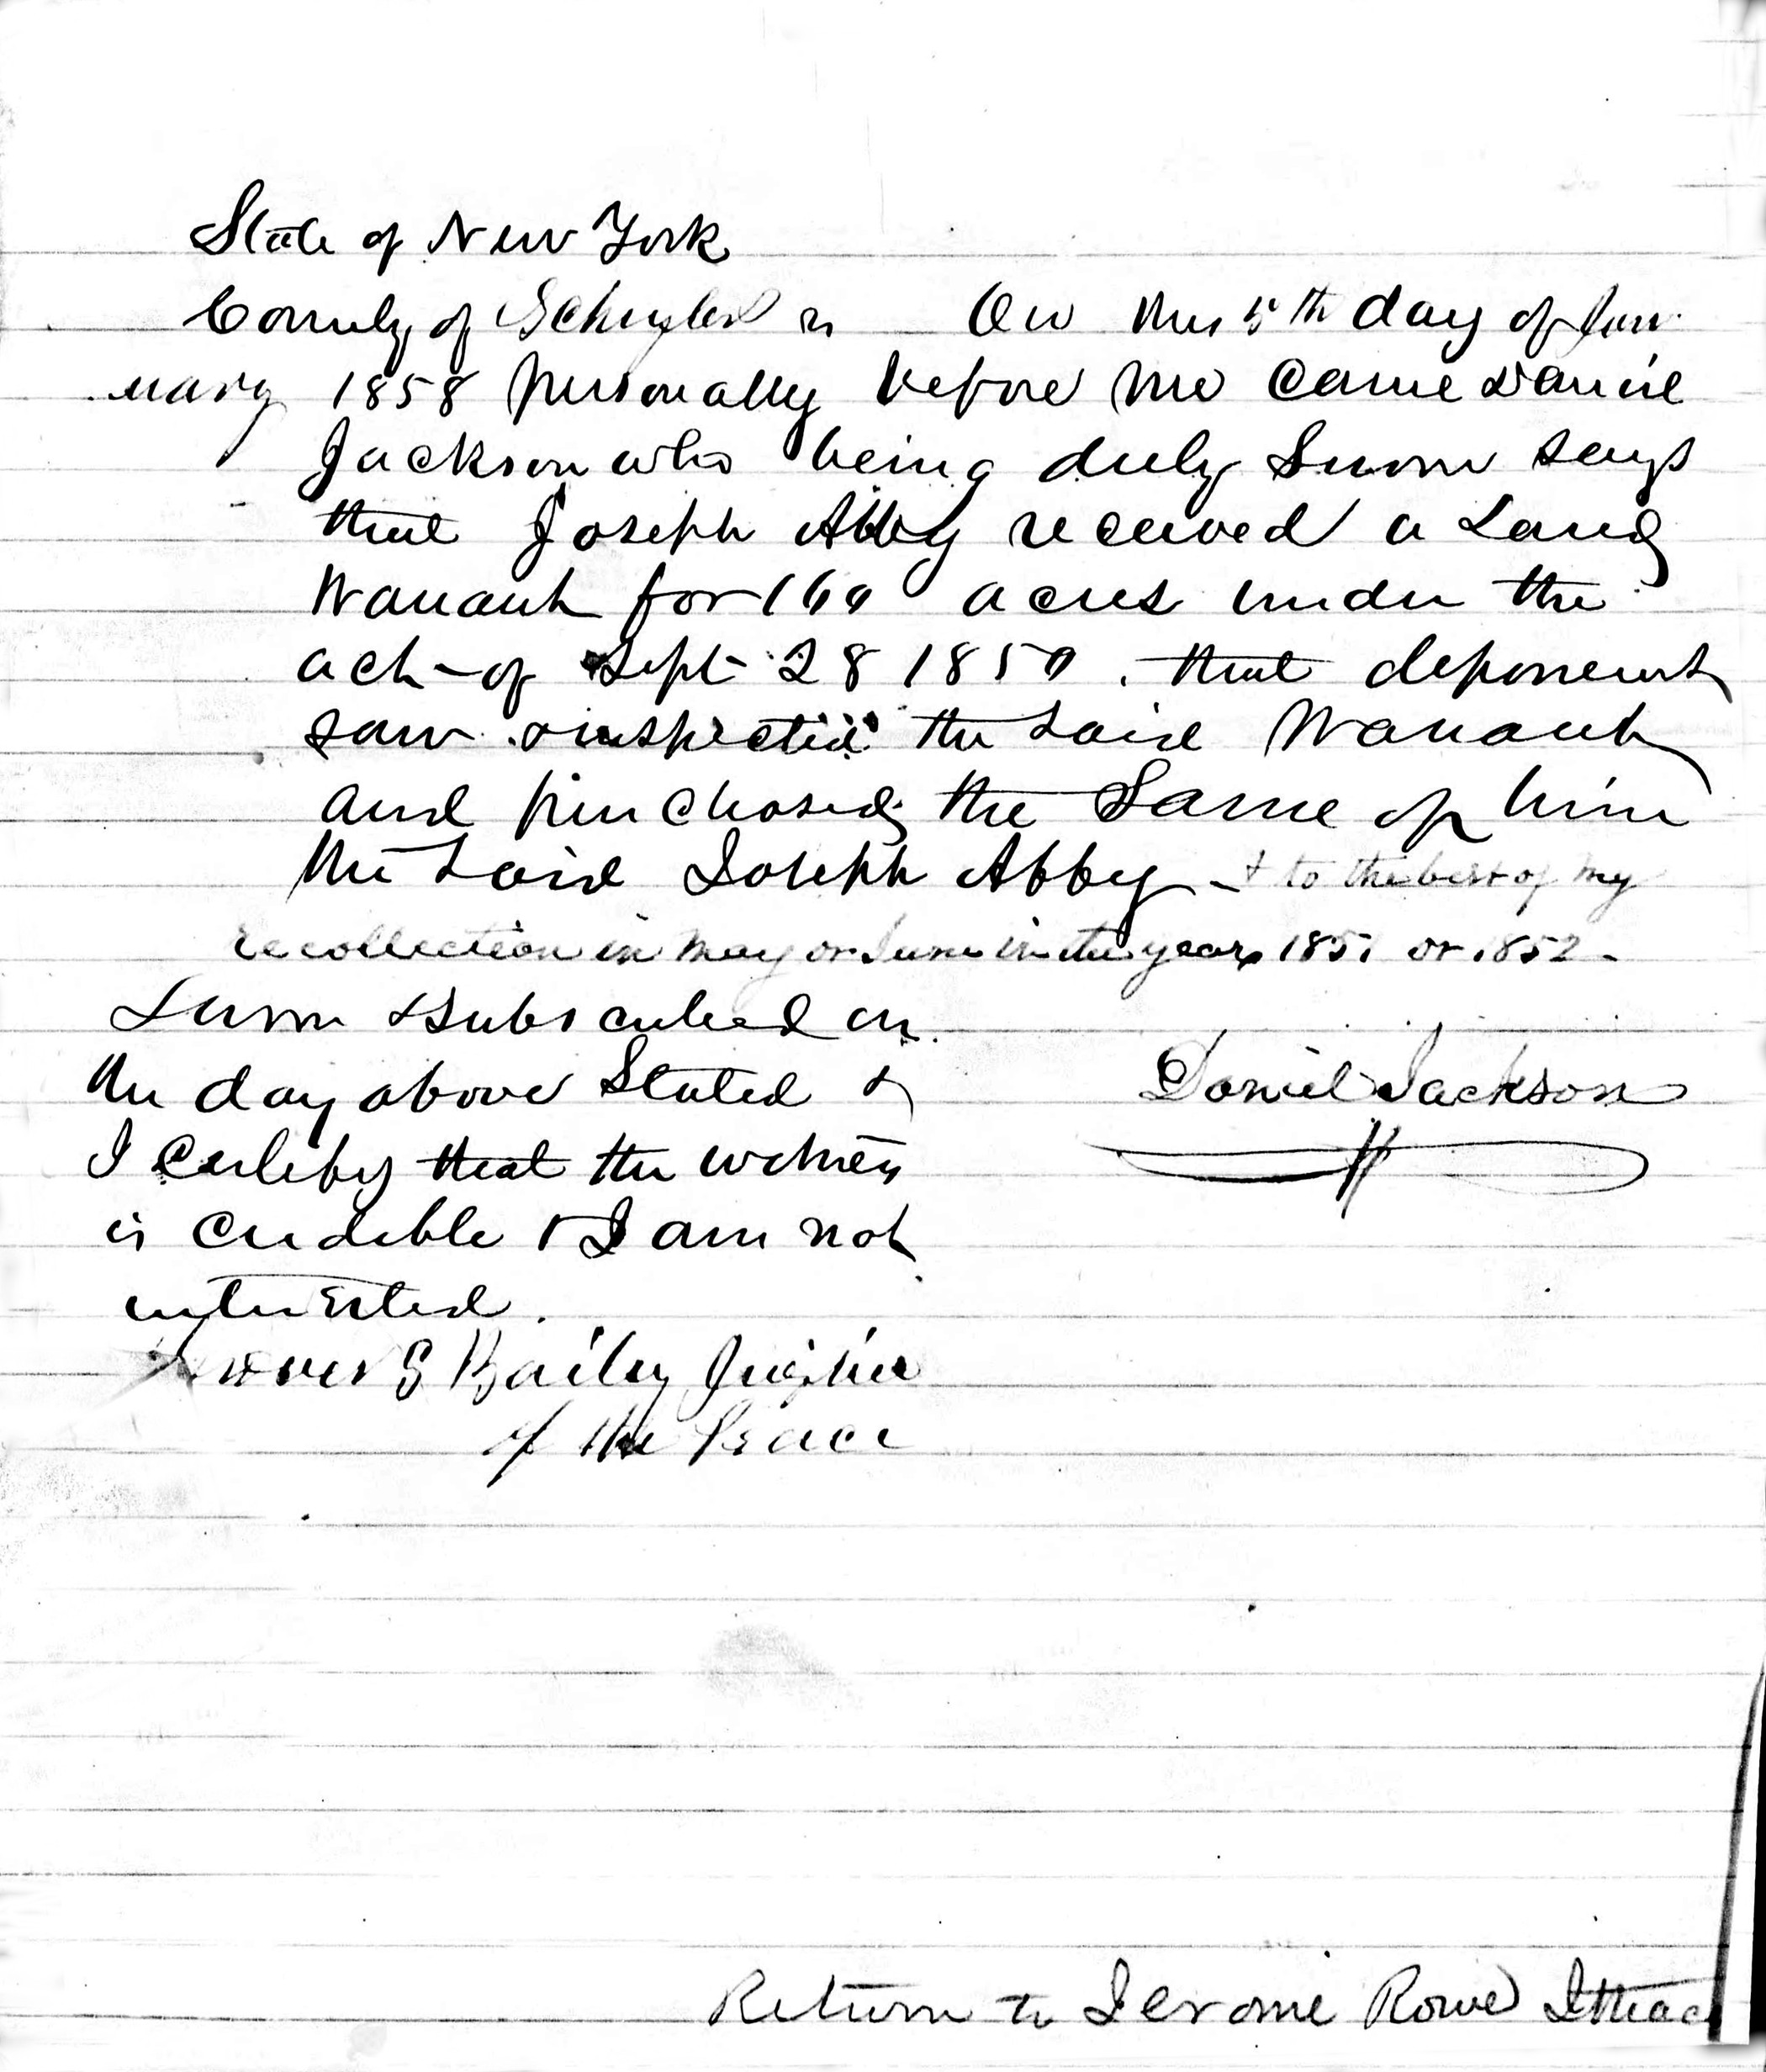 State of New York
County of Schuyler ss On this 5th day of Jan
uary 1858 personally before me came Daniel
Jackson who being duly Sworn says
that Joseph Abby received a Land
Warrant for 160 acres under the
act of Sept 28 1850 . that deponent
saw & inspected the said Warrant
and purchased the Same of him
the said Joseph Abby & to the best of my
recollection in may or June in the year 1851 or 1852 -
Sworn & Subscribed on
the day above Stated &
I certify that the witness
is credible & I am not
interested.
S Baily Justice
of the Peace
Daniel Jackson
Return to Jerome Rowe Ithaca